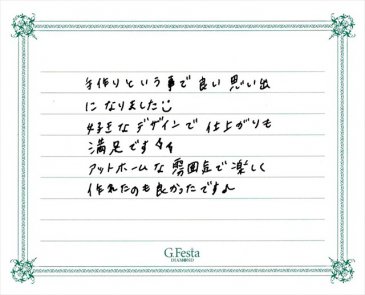 手作りという事で良い思い出
になりました☺
好きなデザインで仕上がりも
満足です
アットホームな雰囲気で楽しく
作れたのも良かったです♪
G.Festa
DIAMOND